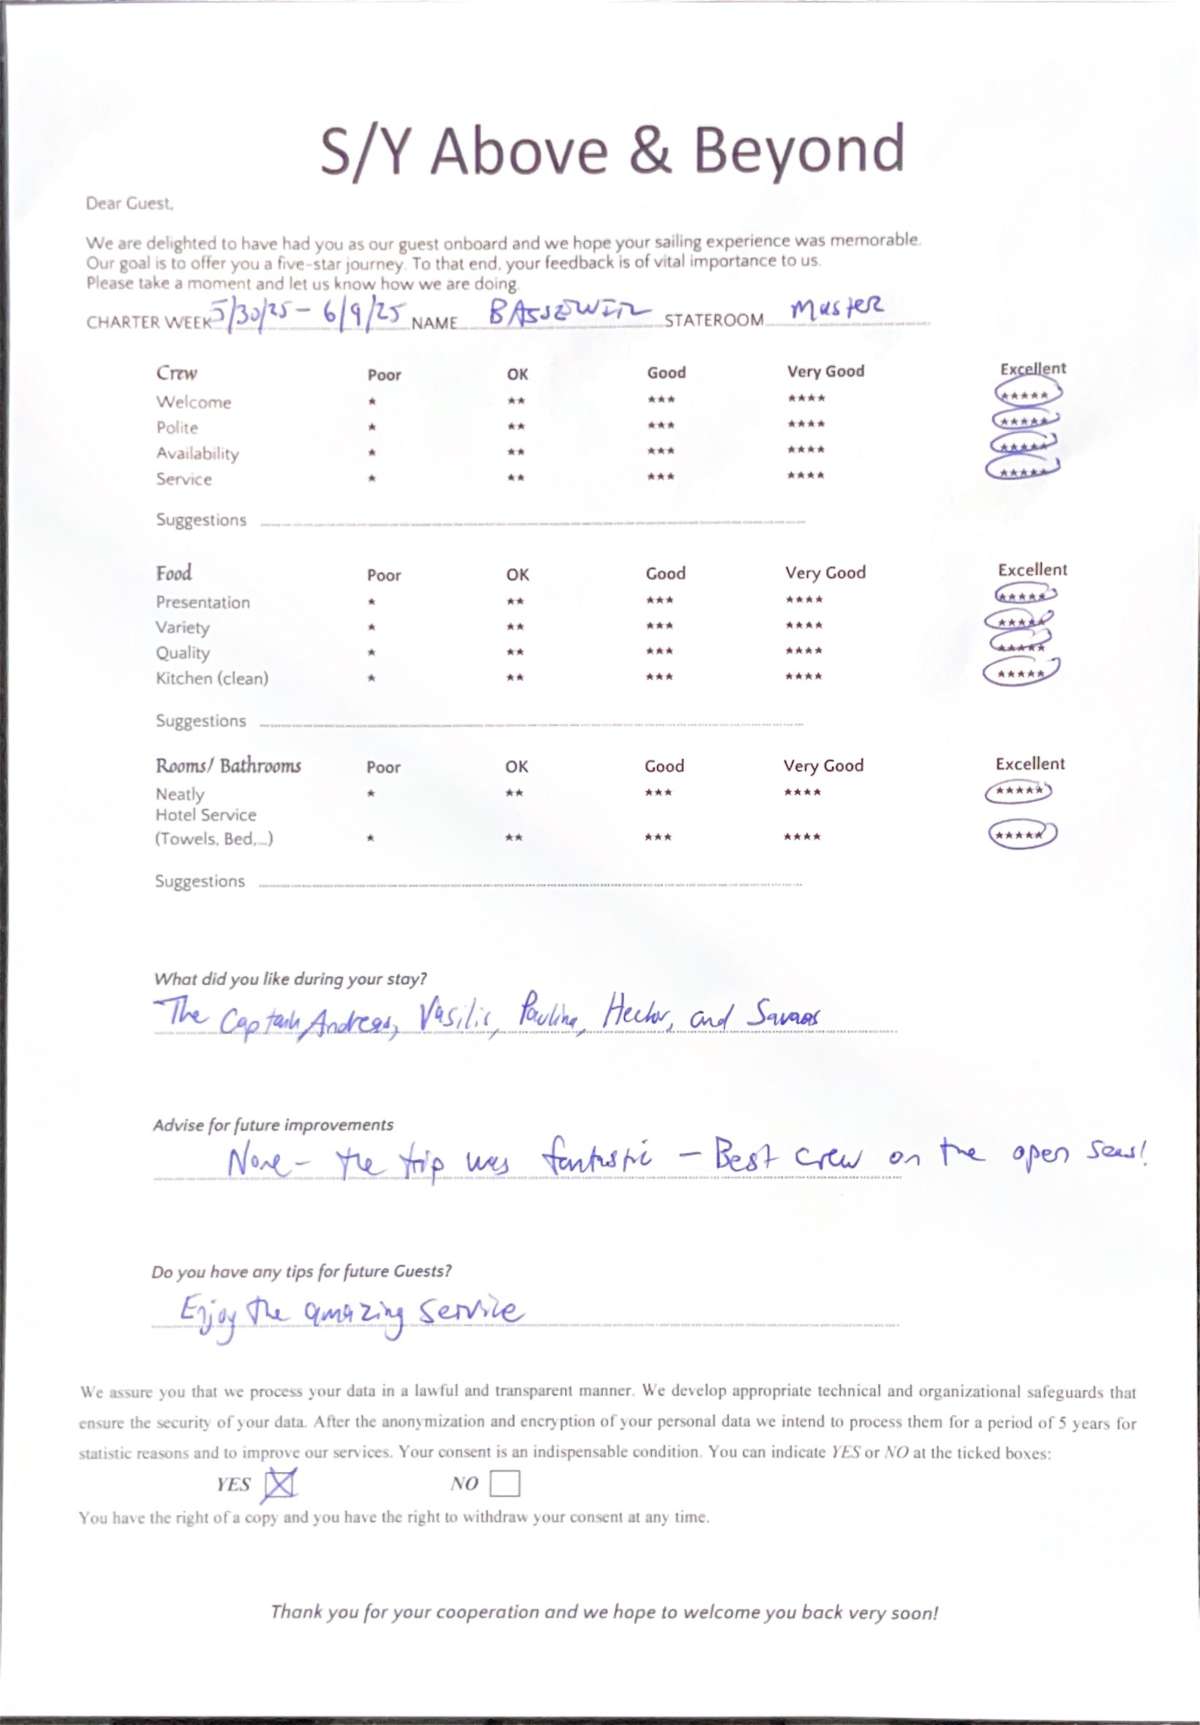 S/Y Above & Beyond
Dear Guest,
We are delighted to have had you as our guest onboard and we hope your sailing experience was memorable.
Our goal is to offer you a five-star journey. To that end, your feedback is of vital importance to us.
Please take a moment and let us know how we are doing.
CHARTER WEEK 5/30/25 - 6/9/25 NAME STATEROOM Master
Crew Poor OK Good Very Good Excellent
Welcome * ** *** **** *****
Polite * ** *** **** *****
Availability * ** *** **** *****
Service * ** *** **** *****
Suggestions
Food Poor OK Good Very Good Excellent
Presentation * ** *** **** *****
Variety * ** *** **** *****
Quality * ** *** **** *****
Kitchen (clean) * ** *** **** *****
Suggestions
Rooms/ Bathrooms Poor OK Good Very Good Excellent
Neatly * ** *** **** *****
Hotel Service
(Towels, Bed,...) * ** *** **** *****
Suggestions
What did you like during your stay?
The Captain Andreas, Vasilis, Paulina, Hector, and
Advise for future improvements
None - the trip was fantastic - Best crew on the open seas!
Do you have any tips for future Guests?
Enjoy the amazing service
We assure you that we process your data in a lawful and transparent manner. We develop appropriate technical and organizational safeguards that
ensure the security of your data. After the anonymization and encryption of your personal data we intend to process them for a period of 5 years for
statistic reasons and to improve our services. Your consent is an indispensable condition. You can indicate YES or NO at the ticked boxes:
YES NO
You have the right of a copy and you have the right to withdraw your consent at any time.
Thank you for your cooperation and we hope to welcome you back very soon!